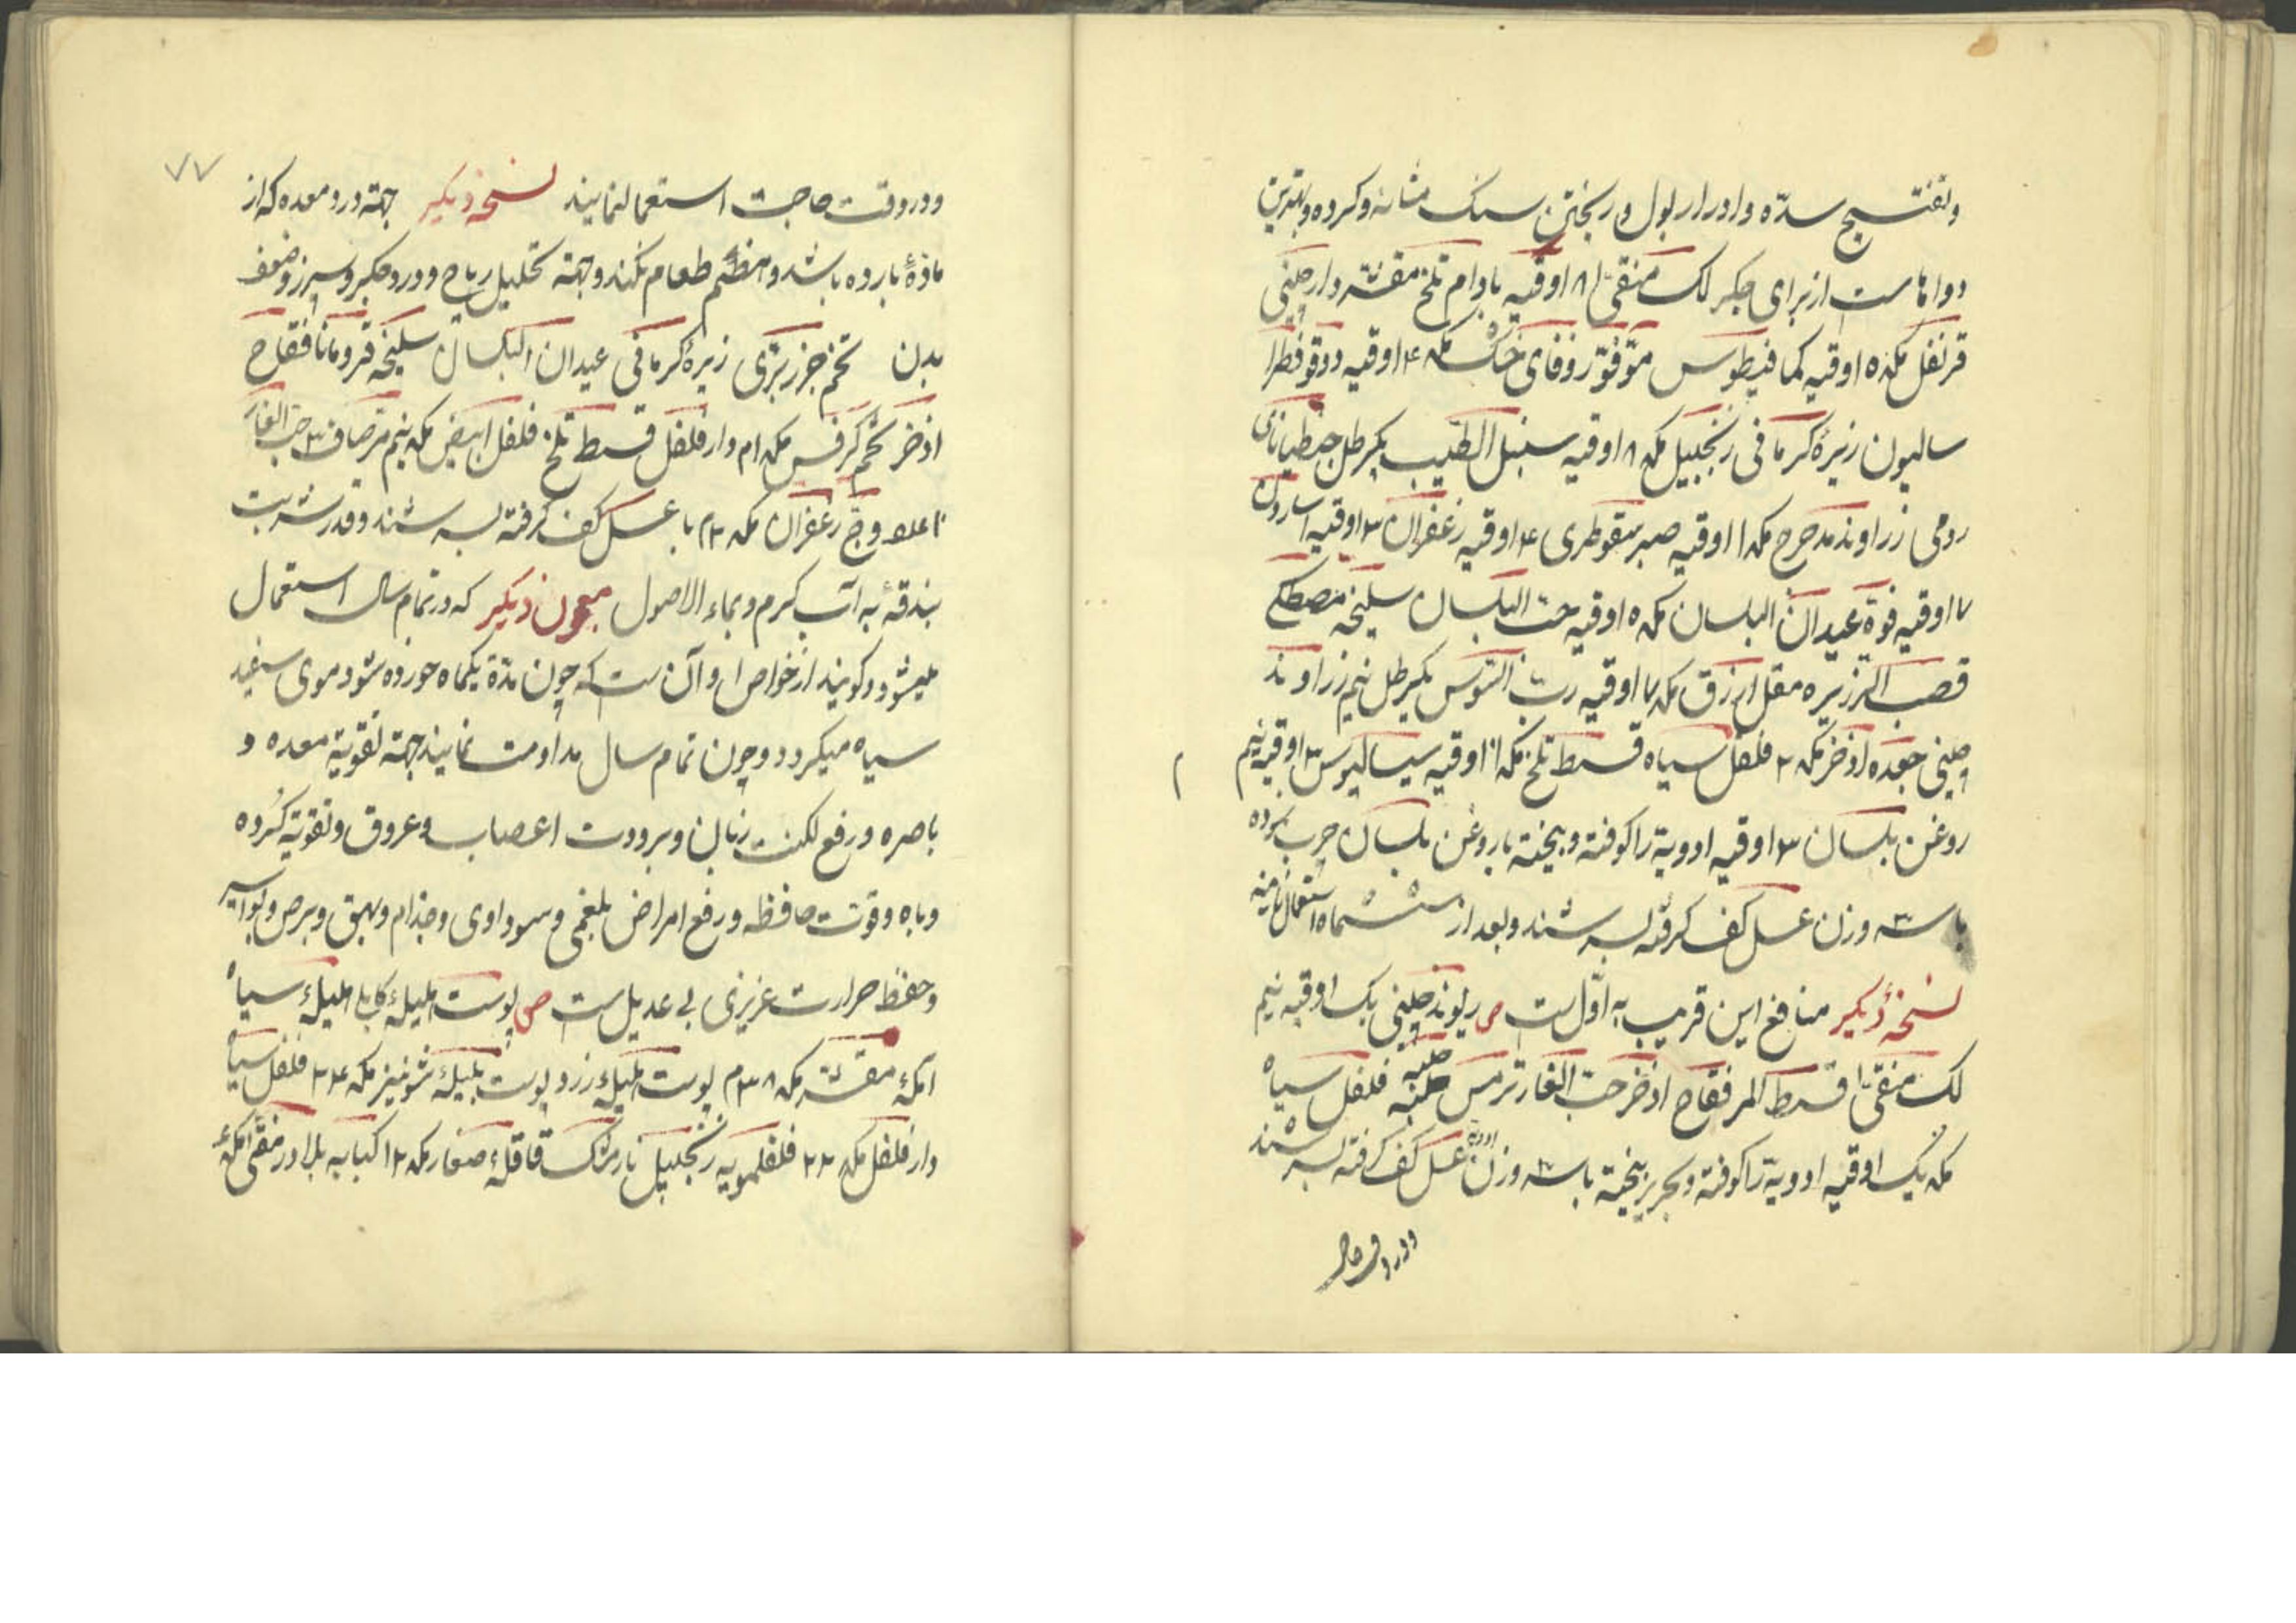 وتفتیح سدّه وادرار بول وریختن سنک مثانه وکرده وبهترین
دواهاست از برای جکر لک منقی ۸ اوقیه بادام تلخ مقشر دارچینی
قرنفل مکد ۵ اوقیه کمافیطوس مو فوّ زوفای خشک مکد ۴ اوقیه دوقو فطرا
سالیون زیرهٔ کرمانی زنجبیل مکد ۸ اوقیه سنبل الطیب یکرطل جنطیانای
رومی زراوند مدحرج مکد ۱ اوقیه صبر سقوطری ۴ اوقیه زعفران ۳ اوقیه اسارون
۷ اوقیه فوّة عیدان البلسان مکد ۵ اوقیه حب البلسان سلیخه مصطکی
قصب الذریره مقل ازرق مکد ۷ اوقیه رب السوس یکرطل نیم زراوند
چینی جعده اذخر مکد ۲ فلفل سیاه قسط تلخ مکد ۱ اوقیه سیسالیوس ۳ اوقیه نیم
روغن بلسان ۳ اوقیه ادویة را کوفته وبیخته با روغن بلسان چرب کرده
با سه وزن عسل کف کرفته بسرشند وبعد از ششماه استعمال نمایند
نسخهٔ دیکر منافع این قریب به اول ست ص ریوند چینی یک اوقیه نیم
لک منقی قسط المر فقاح اذخر حب الغار ترمس حلبه فلفل سیاه
مکد یک اوقیه ادویة را کوفته وبحریر بیخته با سه وزن ادویه عسل کف کرفته بسرشند
ودر وقت
۷۷
ودر وقت حاجت استعمال نمایند نسخهٔ دیکر جهة درد معده که از
مادهٔ بارده باشد وهضم طعام نکند وجهة تحلیل ریاح ودرد جکر وسپرز وضعف
بدن تخم جزر بری زیرهٔ کرمانی عیدان البلسان سلیخه قردمانا فقاح
اذخر تخم کرفس مکد ام دارفلفل قسط تلخ فلفل ابیض مکد نیم حب الغار
وج زعفران مکد ۲م با عسل کف کرفته بسرشند وقدر شربت
بندقهٔ به آب کرم وبماء الاصول معجون دیکر که در تمام سال استعمال
میشود وکویند از خواص او آن ست که چون مدة یکماه خورده شود موی سفید
سیاه میکردد وچون تمام سال مداومت نمایند جهة تقویة معده و
باصره ورفع لکنت زبان وبرودت اعصاب وعروق وتقویة کرده
وباه وقوت حافظه ورفع امراض بلغمی وسوداوی وجذام وبهق وبرص وبواسیر
وحفظ حرارت غریزی بی عدیل ست ص پوست هلیلهٔ کابلی هلیلهٔ سیاه
آملهٔ مقشر مکد ۳۸م پوست هلیلهٔ زرد پوست بلیلهٔ شونیز مکد ۲۴ فلفل سیاه
دارفلفل مکد ۲۲ فلفلمویه زنجبیل نارمشک قاقلهٔ صغار مکد ۱۲ کبابه بلادر منقی آملهٔ